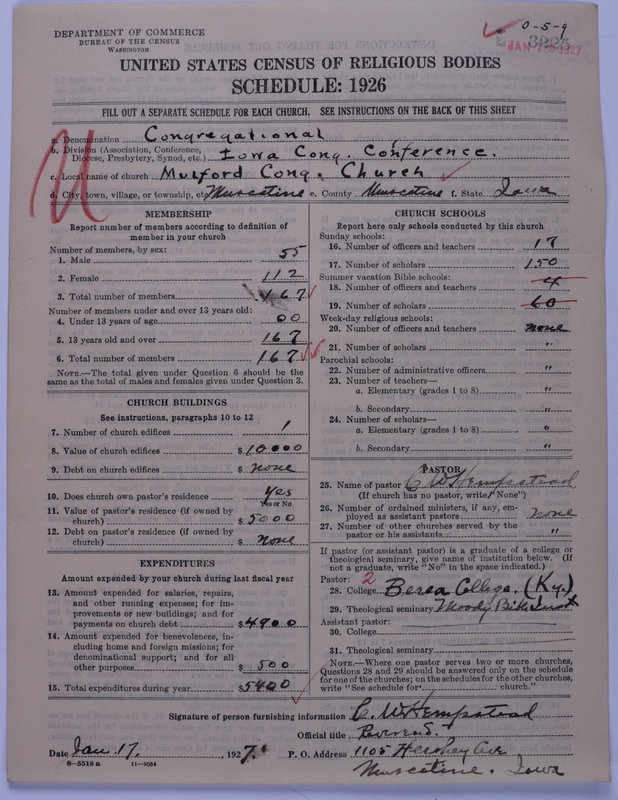 DEPARTMENT OF COMMERCE
BUREAU OF THE CENSUS
WASHINGTON
0-5-9
3225
JAN 1927
UNITED STATES CENSUS OF RELIGIOUS BODIES
SCHEDULE: 1926
FILL OUT A SEPARATE SCHEDULE FOR EACH CHURCH. SEE INSTRUCTIONS ON THE BACK OF THIS SHEET
a. Denomination Congregational
b. Division (Association, Conference, Diocese, Presbytery, Synod, etc.) Iowa Cong. Conference.
c. Local name of church Mulford Cong. Church
d. City, town, village, or township, etc. Muscatine e. County Muscatine f. State Iowa
MEMBERSHIP
Report number of members according to definition of
member in your church
Number of members, by sex:
1. Male 55
2. Female 112
3. Total number of members 167
Number of members under and over 13 years old:
4. Under 13 years of age 00
5. 13 years old and over 167
6. Total number of members 167
NOTE.—The total given under Question 6 should be
same as the total of males and females given under Question 3.
CHURCH BUILDINGS
See instructions, paragraphs 10 to 12
7. Number of church edifices 1
8. Value of church edifices $10000
9. Debt on church edifices $ none
10. Does church own pastor's residence Yes
Yes or No
11. Value of pastor's residence (if owned by
church) $ 5000
12. Debt on pastor's residence (if owned by
church) $ none
EXPENDITURES
Amount expended by your church during last fiscal year
13. Amount expended for salaries, repairs,
and other running expenses; for im-
provements or new buildings; and for
payments on church debt $4900
14. Amount expended for benevolences, in-
cluding home and foreign missions; for
denominational support; and for all
other purposes $ 500
15. Total expenditures during year $5400
CHURCH SCHOOLS
Report here only schools conducted by this church
Sunday schools:
16. Number of officers and teachers 17
17. Number of scholars 150
Summer vacation Bible schools:
18. Number of officers and teachers 4
19. Number of scholars 60
Week-day religious schools:
20. Number of officers and teachers none
21. Number of scholars "
Parochial schools:
22. Number of administrative officers "
23. Number of teachers—
a. Elementary (grades 1 to 8) "
b. Secondary "
24. Number of scholars—
a. Elementary (grades 1 to 8) "
b. Secondary "
PASTOR
25. Name of pastor C W Hempstead
(If church has no pastor, write "None")
26. Number of ordained ministers, if any, em-
ployed as assistant pastors none
27. Number of other churches served by the
pastor or his assistants "
If pastor (or assistant pastor) is a graduate of a college or
theological seminary, give name of institution below. (If
not a graduate, write "No" in the space indicated.)
Pastor: 2
28. College Berea College. (Ky.)
29. Theological seminary Moody Bible Inst
Assistant pastor:
30. College
31. Theological seminary
NOTE.—Where one pastor serves two or more churches,
Questions 28 and 29 should be answered only on the schedule
for one of the churches; on the schedules for the other churches,
write "See schedule for church."
Signature of person furnishing information C. W Hempstead
Official title Reverend.
Date Jan. 17, 1927. P. O. Address 1105 Hershey Ave
Muscatine. Iowa
8-5518 a 11-9034